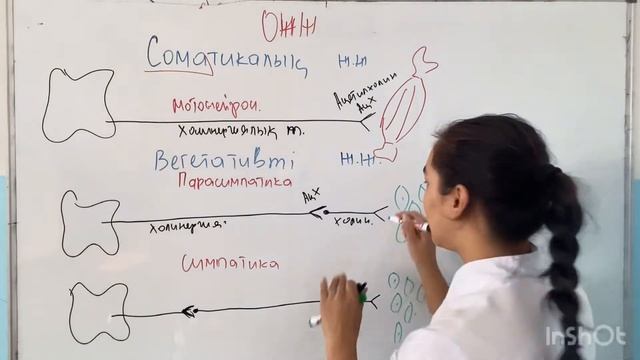 ОЖЖ
Соматикалық ж.ж
Мотонейрон.
Ацетилхолин
АцХ
Холинергиялық т.
Вегетативті ж.ж.
Парасимпатика
АцХ
холинергия.
холин.
Симпатика
InShOt